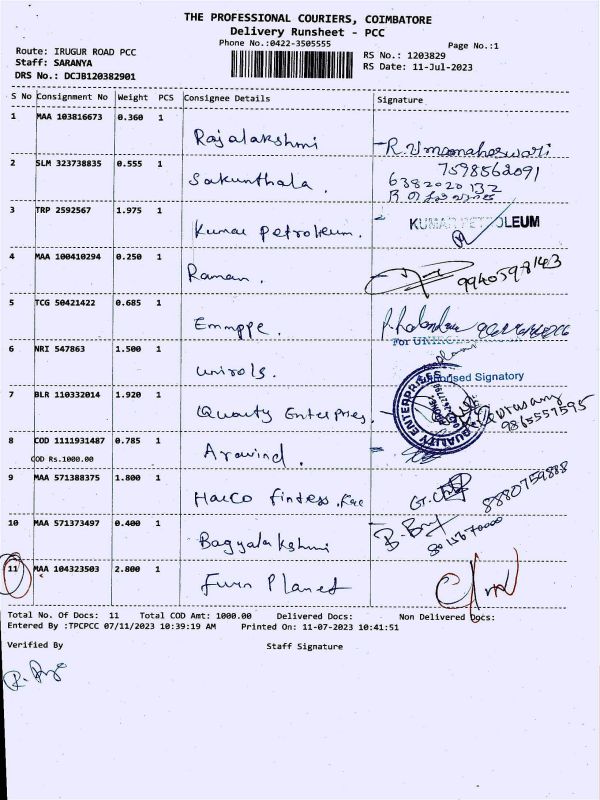 THE PROFESSIONAL COURIERS, COIMBATORE
Delivery Runsheet - PCC
Phone No.:0422-3505555
Page No.:1
Route: IRUGUR ROAD PCC
Staff: SARANYA
DRS No.: DCJB120382901
RS No.: 1203829
RS Date: 11-Jul-2023
S No Consignment No Weight PCS Consignee Details Signature
1 MAA 103816673 0.360 1 Rajalakshmi R. Umamaheswari
7598562091
2 SLM 323738835 0.555 1 Sakunthala. 6382020132
3 TRP 2592567 1.975 1 Kumar Petroleum. KUMAR PETROLEUM
4 MAA 100410294 0.250 1 Raman. 9940598143
5 TCG 50421422 0.685 1 Emmppe.
For
6 NRI 547863 1.500 1 unirols. Authorised Signatory
7 BLR 110332014 1.920 1 Quality Enterprises, QUALITY ENTERPRISES
9865557595
8 COD 1111931487 0.785 1 Aravind.
COD Rs.1000.00
9 MAA 571388375 1.800 1 8880759888
10 MAA 571373497 0.400 1 Bagyalakshmi
11 MAA 104323503 2.800 1 Furn Planet
Total No. Of Docs: 11 Total COD Amt: 1000.00 Delivered Docs: Non Delivered Docs:
Entered By :TPCPCC 07/11/2023 10:39:19 AM Printed On: 11-07-2023 10:41:51
Verified By Staff Signature